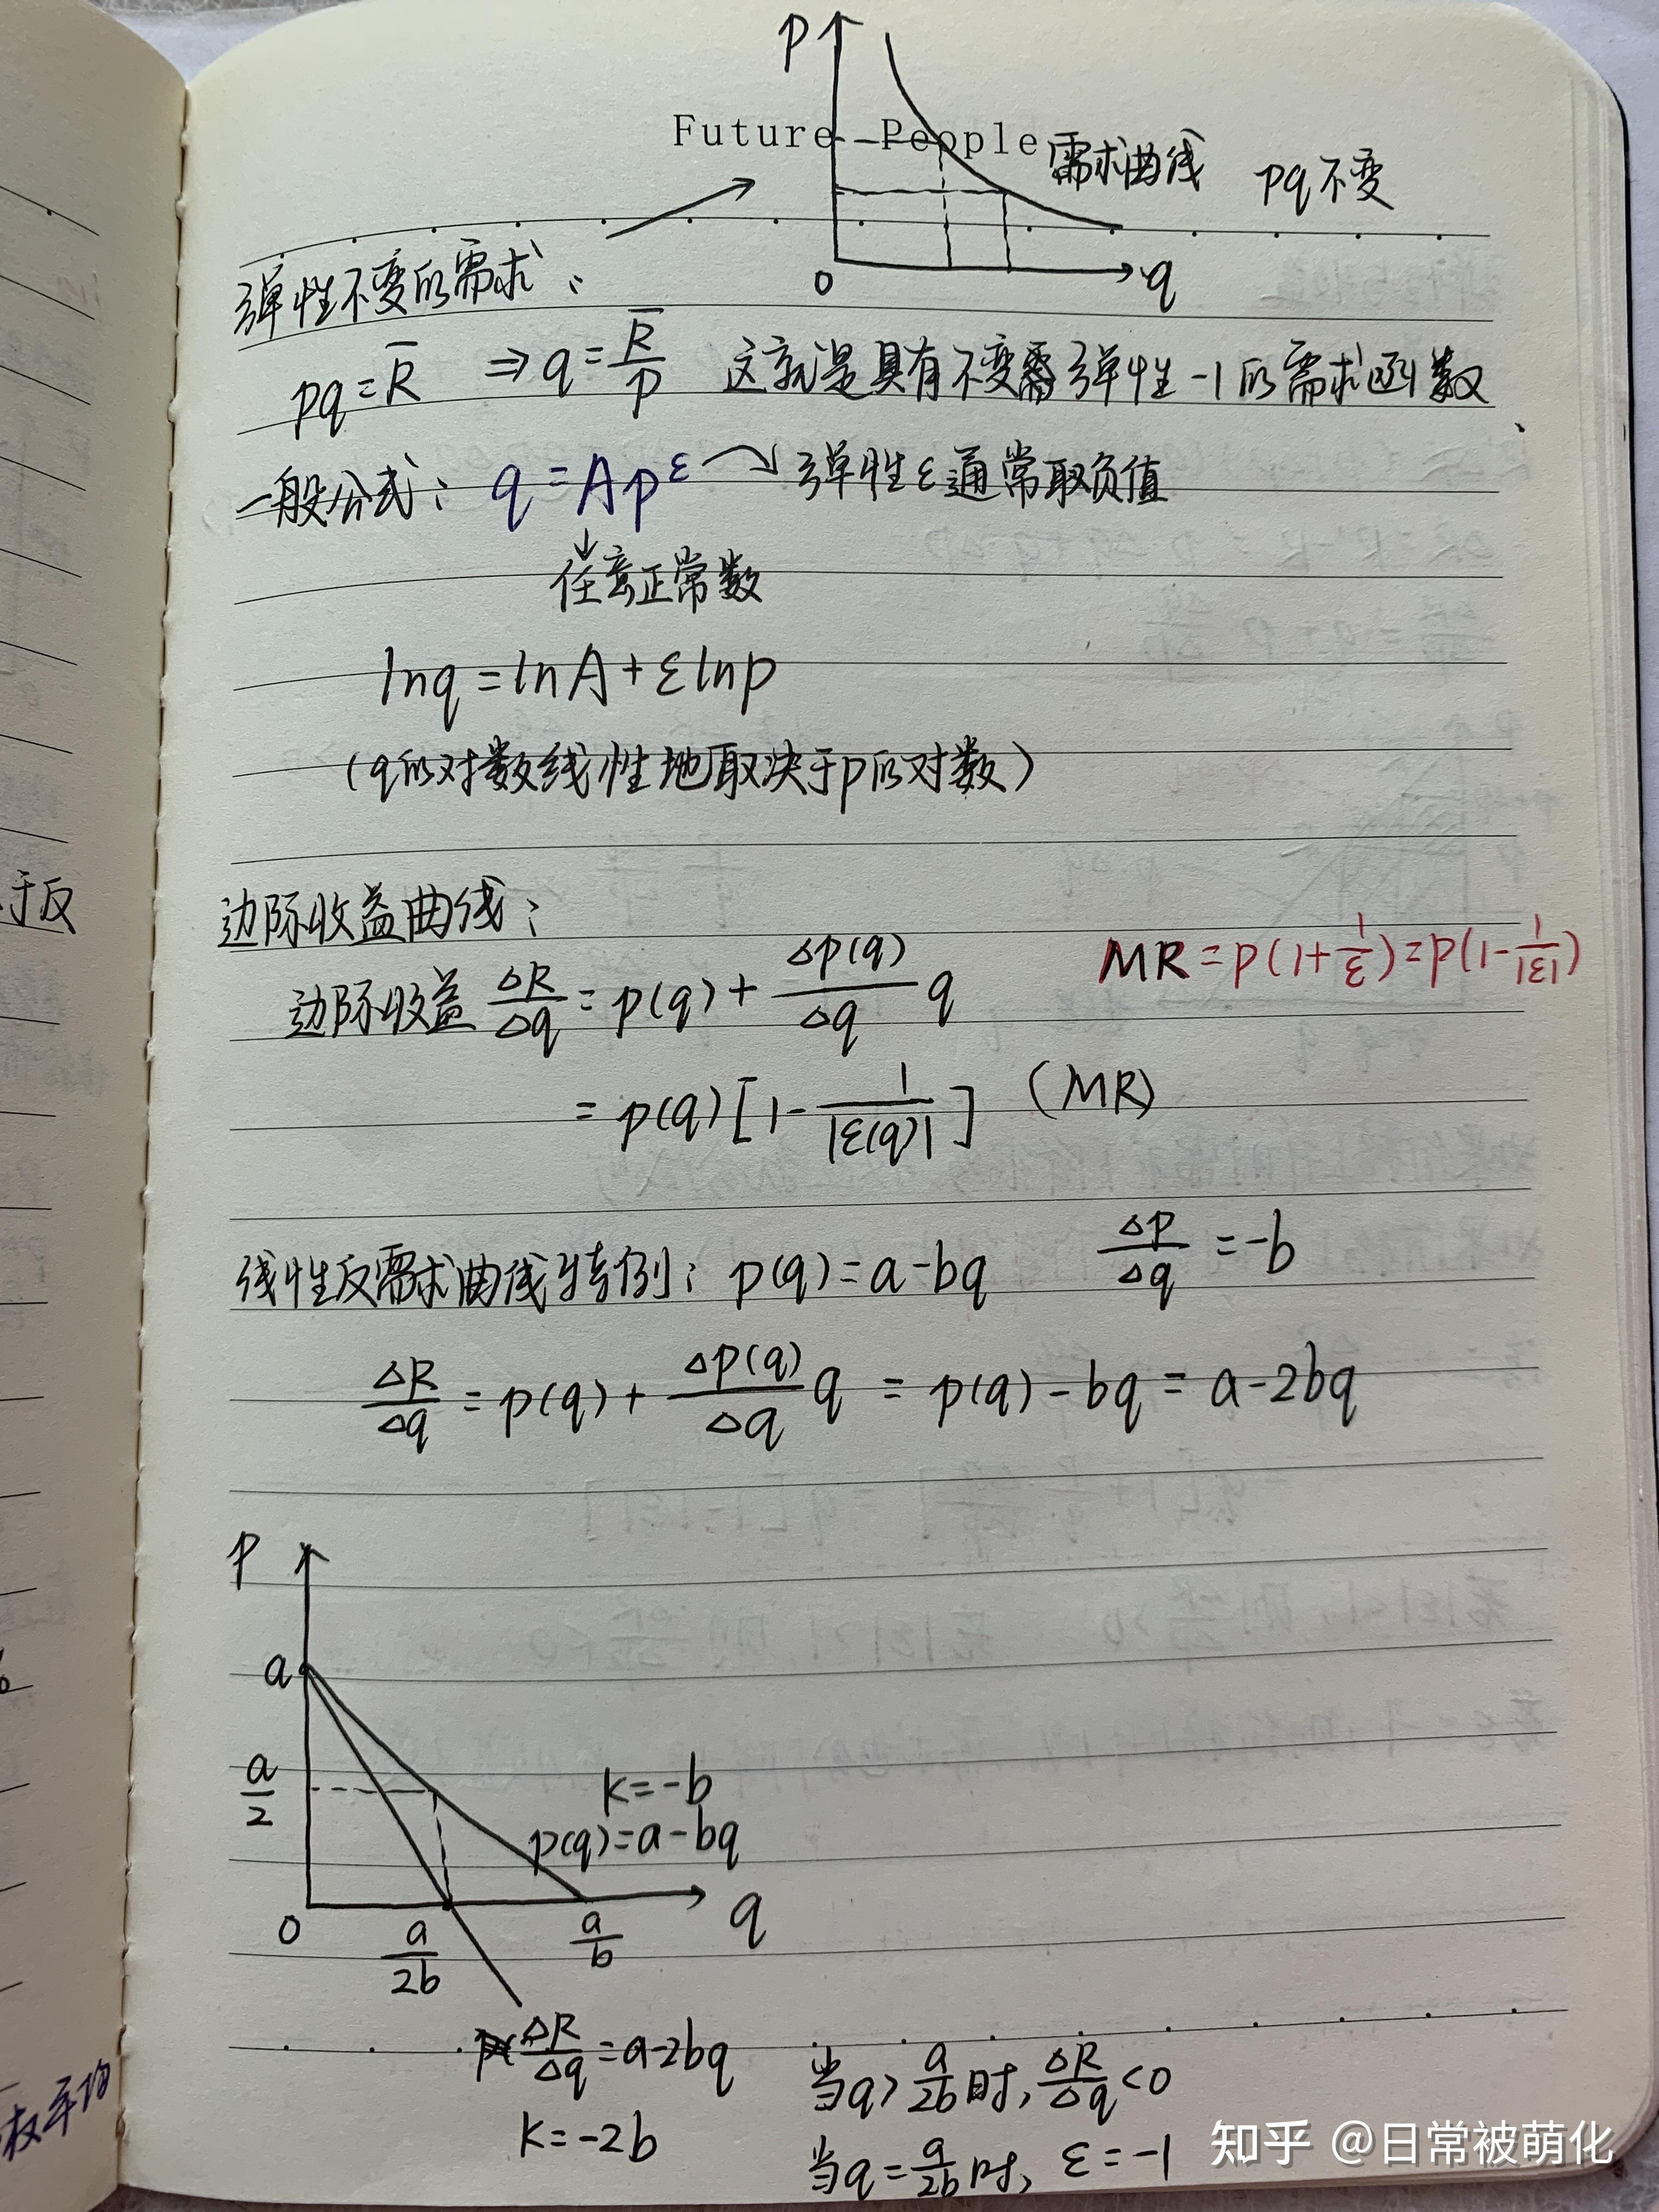 p
Future People
需求曲线 pq不变
0 q
弹性不变的需求:
pq=R̅ ⇒ q=R̅/p 这就是具有不变 弹性-1的需求函数
一般公式: q=Ap^ε → 弹性ε通常取负值
↓
任意正常数
lnq=lnA+εlnp
(q的对数线性地取决于p的对数)
于反
边际收益曲线:
MR=p(1+1/ε)=p(1-1/|ε|)
边际收益 ΔR/Δq=p(q)+Δp(q)/Δq q
=p(q)[1-1/|ε(q)|] (MR)
线性反需求曲线特例: p(q)=a-bq Δp/Δq=-b
ΔR/Δq=p(q)+Δp(q)/Δq q=p(q)-bq=a-2bq
p
a
a/2
k=-b
p(q)=a-bq
0 a/2b a/b q
ΔR/Δq=a-2bq
k=-2b
当q>a/2b时, ΔR/Δq<0
当q=a/2b时, ε=-1
知乎 @日常被萌化